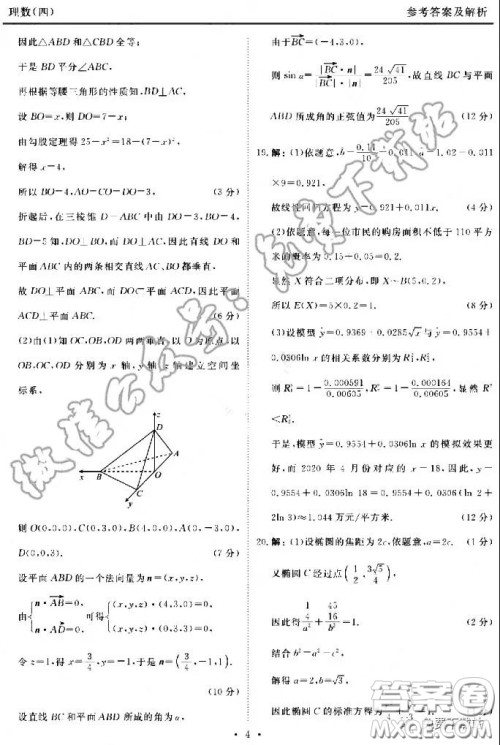 理数(四)
参考答案及解析
因此△ABD 和△CBD 全等;
于是 BD 平分∠ABC,
再根据等腰三角形的性质知,BD⊥AC,
设 BO=x,则 DO=7-x;
由勾股定理得 25-x²=18-(7-x)²,
解得 x=4,
所以 BO=4,AO=CO=DO=3, (3 分)
折起后,在三棱锥 D-ABC 中由 DO=3,BO=4,
BD=5 知,DO⊥BO,而 DO⊥AC,因此直线 DO 和
平面 ABC 内的两条相交直线 AC,BO 都垂直,
故 DO⊥平面 ABC,而 DO⊂平面 ACD,因此平面
ACD⊥平面 ABC. (6 分)
(2)由(1)知 OC,OB,OD 两两垂直,以 O 为原点,以
OB,OC,OD 分别为 x 轴,y 轴,z 轴建立空间坐
标系,
z
D
A
x
B
O
C
y
则 O(0,0,0),C(0,3,0),B(4,0,0),A(0,-3,0),
D(0,0,3). (7 分)
设平面 ABD 的一个法向量为 n=(x,y,z),
由{n·AB=0, n·AD=0, 可得{(x,y,z)·(4,3,0)=0, (x,y,z)·(0,3,3)=0,
令 z=1,得 x=3/4,y=-1,于是 n=(3/4,-1,1),
(10 分)
设直线 BC 和平面 ABD 所成的角为 α,
由于 BC=(-4,3,0),
则 sin α=|BC·n|/|BC||n|=24√41/205,故直线 BC 与平面
ABD 所成角的正弦值为 24√41/205. (12 分)
19.解:(1)依题意,
×9=0.921,
故线性回归方程为 y=0.921+0.011x. (4 分)
(2)依题意,每一位市民的购房面积不低于 110 平方
米的概率为 0.15+0.05=0.2,
显然 X 符合二项分布,即 X~B(5,0.2),
所以 E(X)=5×0.2=1. (8 分)
(3)设模型 ŷ=0.9369+0.0285√x 与 ŷ=0.9554+
0.0306ln x 的相关系数分别为 R₁²,R₂²,
则 R₁²=1-0.000591/0.00605,R₂²=1-0.000164/0.00605,显然 R₁²
<R₂².
于是,模型 ŷ=0.9554+0.0306ln x 的模拟效果更
好,而 2020 年 4 月份对应的 x=18,因此,y=
0.9554+0.0306ln 18=0.9554+0.0306(ln 2+
2ln 3)≈1.044 万元/平方米. (12 分)
20.解:(1)设椭圆的焦距为 2c,依题意,a=2c. (1 分)
又椭圆 C 经过点(1/2,3√5/4),
因此得 1/4/a²+45/16/b²=1.
结合 b²=a²-c²,
解得 a=2,b=√3,
因此椭圆 C 的标准方程为
·4·
微信公众号:
免费下载站